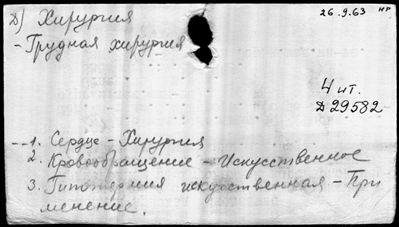 Д) Хирургия
26.9.63 НР
- Грудная хирургия
4 ит.
Д 29582
1. Сердце - Хирургия
2. Кровообращение - Искусственное
3. Гипотермия искусственная - При
менение.